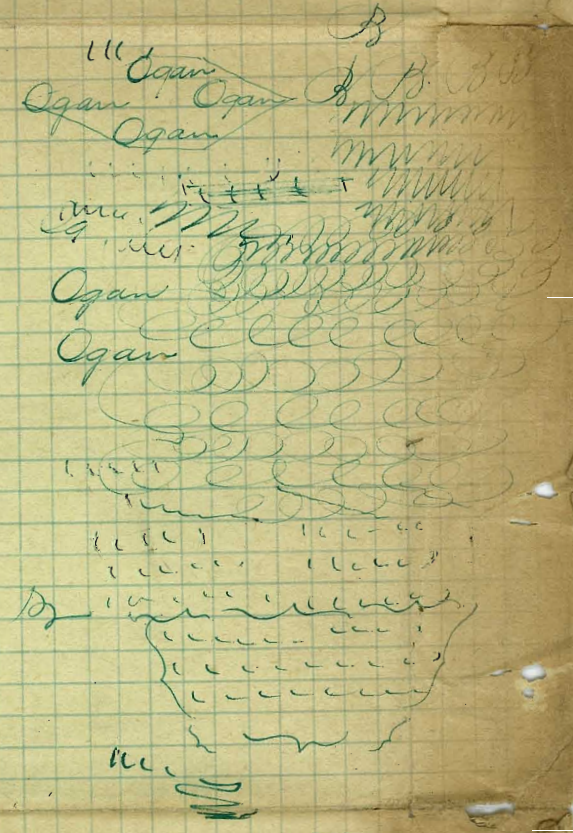 B
Ogan
Ogan Ogan B B. B B
Ogan
Ogan
Ogan